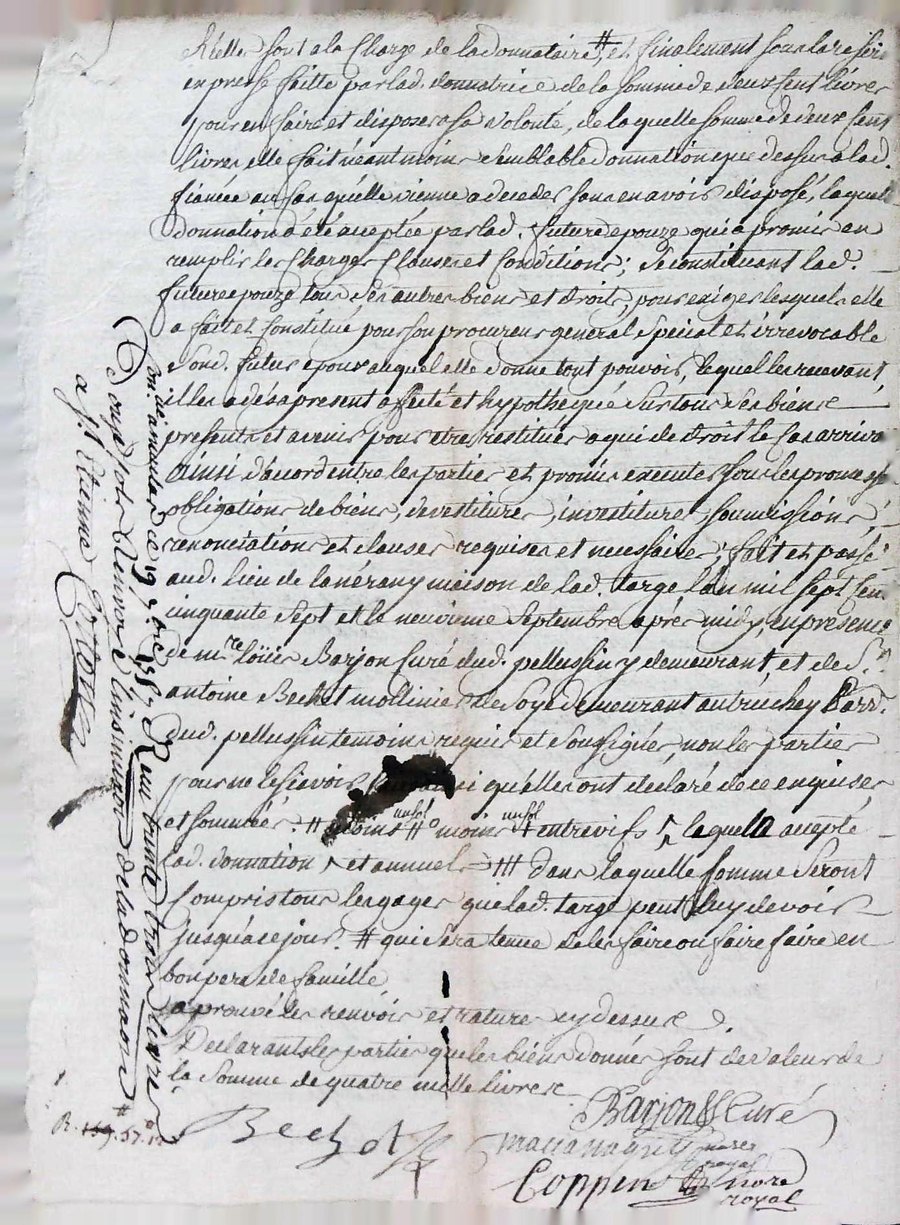 Récolte sont a la charge de la donnataire, # et finalement sous la reserve
expresse faitte par lad. donnatrice de la somme de deux cent livres
pour en faire et disposer a sa volonté, de laquelle somme de deux cent
livres elle fait néant moins semblable donnation que dessus a lad.
fiancée au cas qu'elle vienne a deceder sans en avoir disposé, laquelle
donnation a été acceptée par lad. future epouze qui a promis en
remplir les charges clauses et conditions; se constituant lad.
future epouze tous ses autres biens et droits, pour exiger lesquels elle
a fait et constitué pour son procureur general special et irrevocable
sond. futur epoux auquel elle donne tout pouvoir, lequel les recevant
illes a dés a present affecté et hypothequé sur tous ses biens
presents et avenir pour etre restitués a qui de droit le cas arrivant
ainsi d'accord entre les parties et promis executer sous les promesses
obligations de biens, devestitures, investitures soumissions
renonciations et clauses requises et necessaires; fait et passé
aud. lieu de lanérany maison de lad. targe l'an mil sept cent
cinquante sept et le neuvieme septembre aprés midy, en presence
de mre loüis Barjon Curé dud. pellussin y demeurant, et de Sr
antoine Bechet mollinier de soye demeurant au truchey parr.
dud. pellussin temoins requis et sousignés, non les parties
pour ne le sçavoir qu'elles ont declaré de ce enquises
et sommées. # moins # moins # entrevifs , laquelle a accepté
lad. donnation , et annuel # dans laquelle somme seront
compris tous les gages que lad. targe peut luy devoir
jusqu'a ce jour. # qui sera tenue de les faire ou faire faire en
bon pere de famille
aprouvé les renvois et rature cy dessus.
Declarants les parties que les biens donnés sont de valeur de
la somme de quatre mille livres
Barjon Curé
Bechet
nore royal
Coppin nore
royal
con. et insinué ce 19 7bre 1757 Reçu trente trois livres
douze sols Renvoyé l'insinuation de la donnation #
a St. Etienne
R.